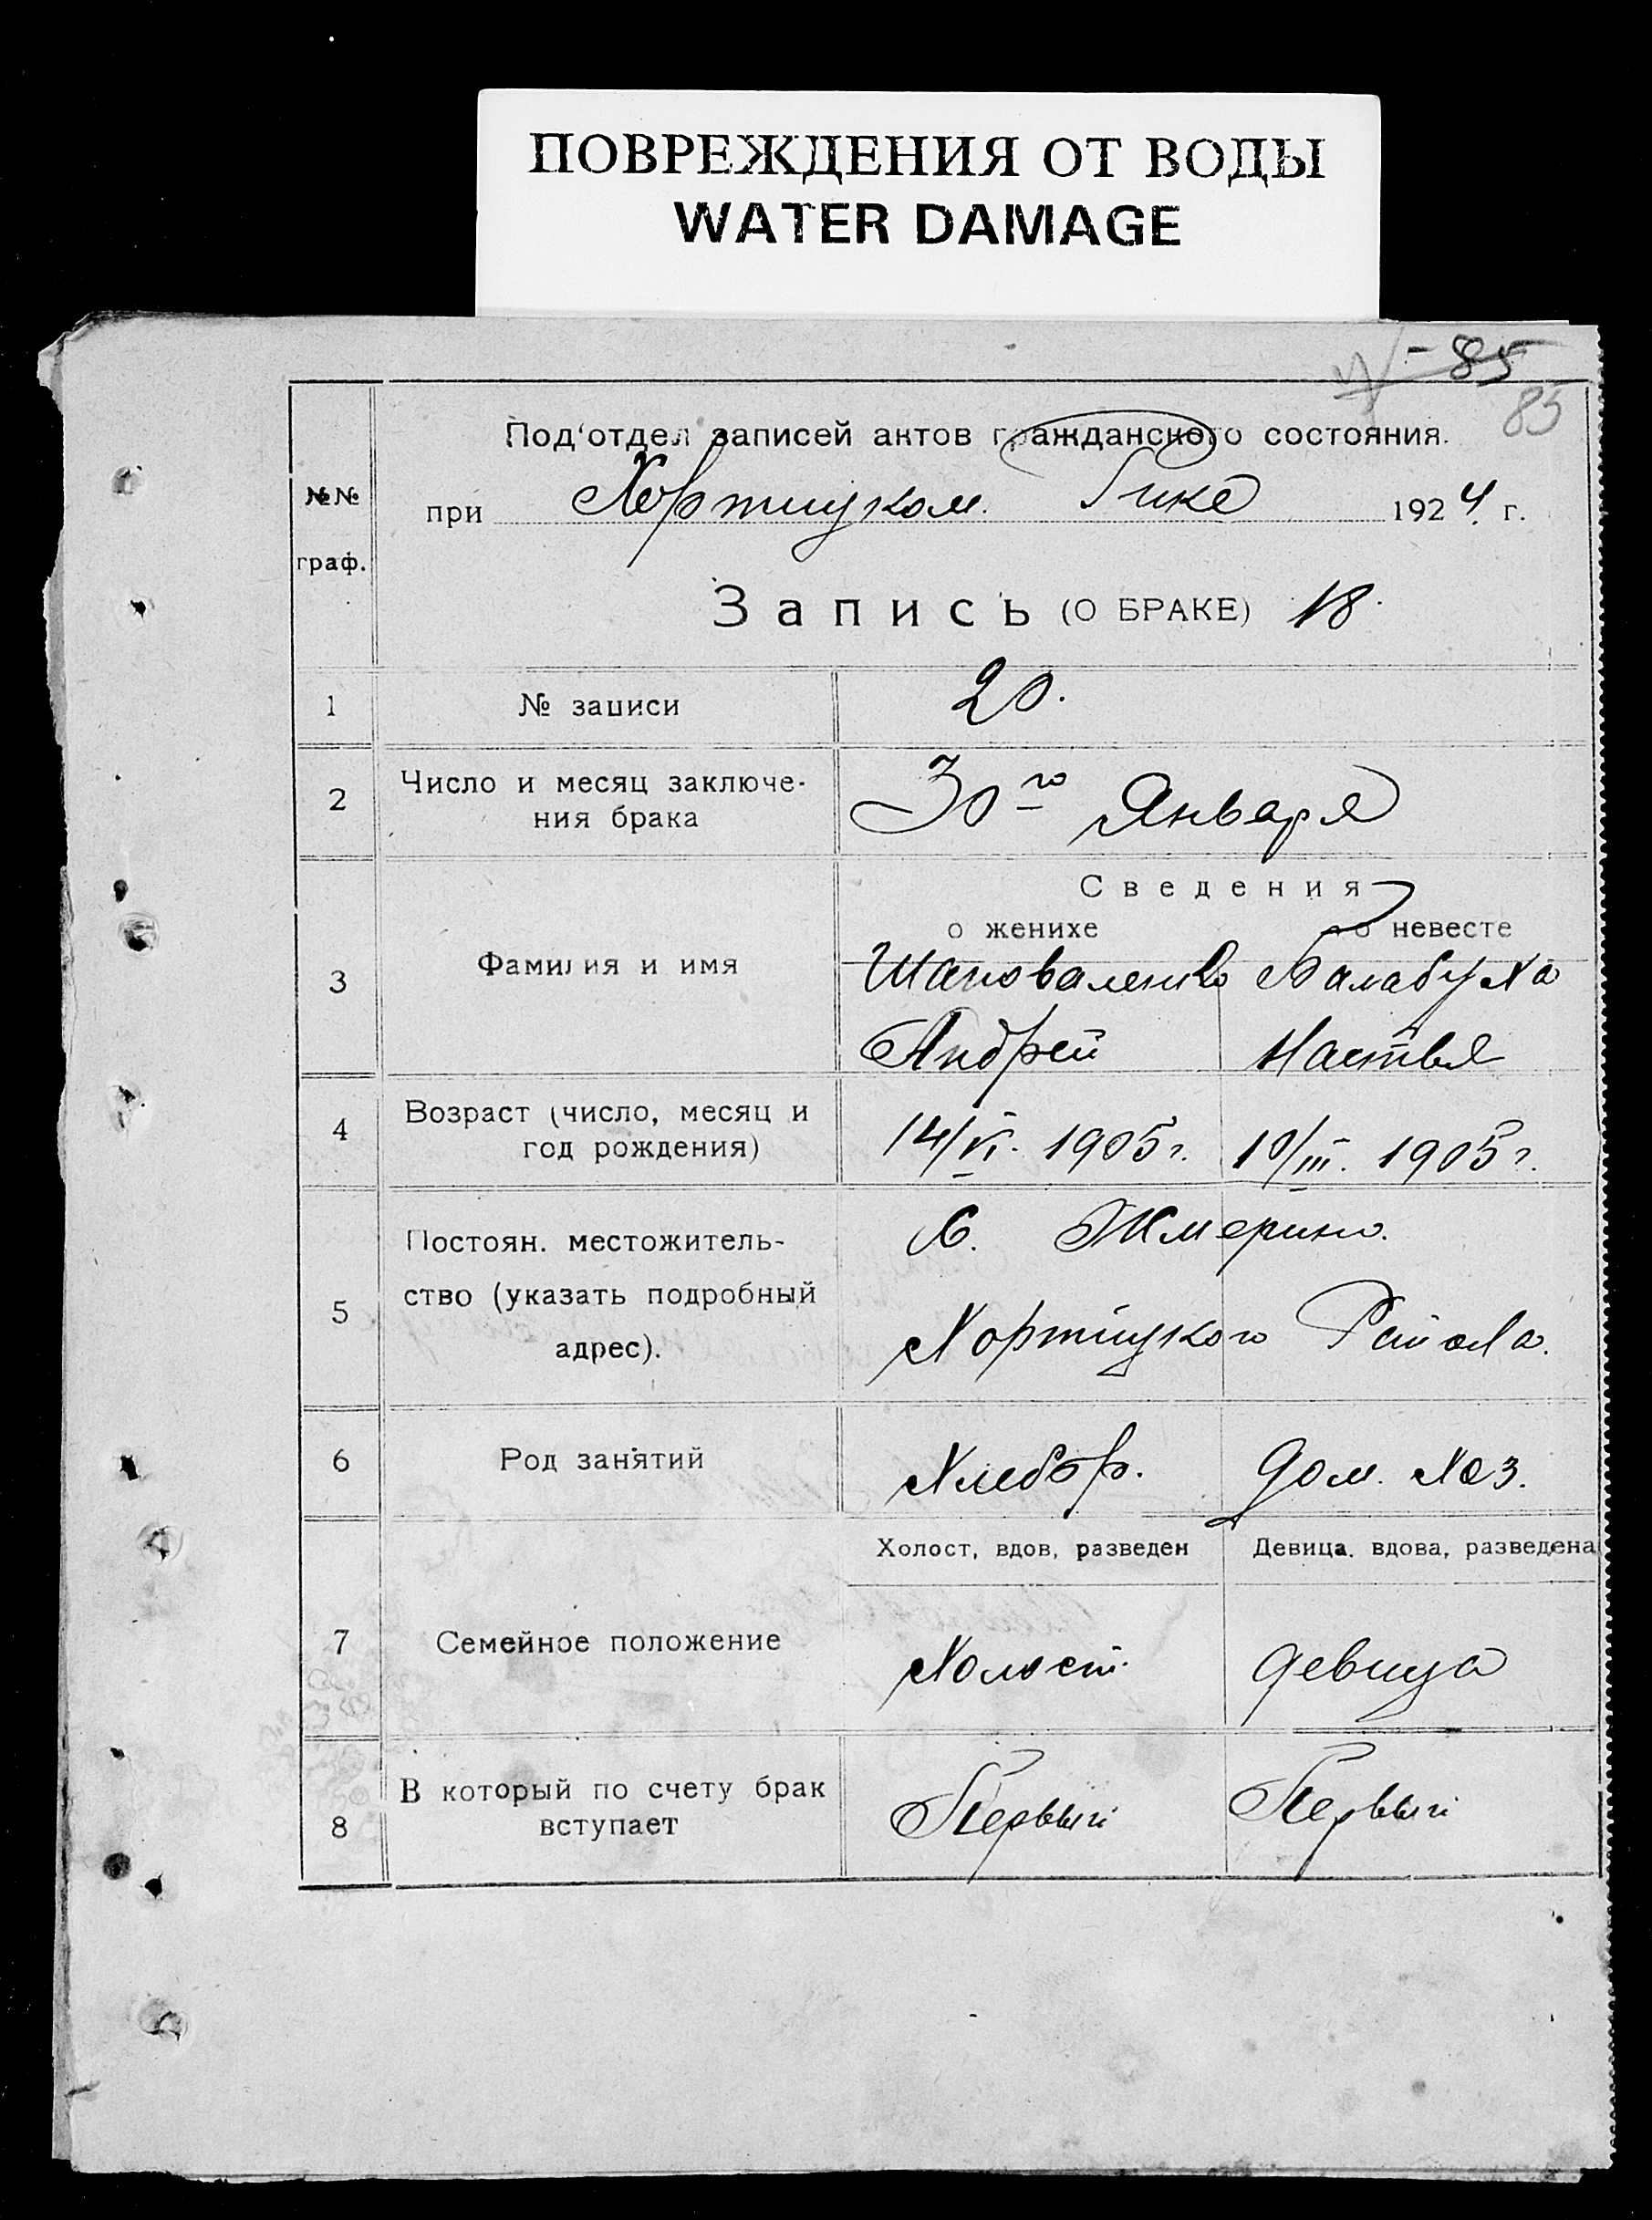 ПОВРЕЖДЕНИЯ ОТ ВОДЫ
WATER DAMAGE
85
85
Под'отдел записей актов гражданского состояния.
№№ граф.
при Хортицком Рике 1924 г.
Запись (О БРАКЕ) 18.
1 № записи 20.
2 Число и месяц заключе-
ния брака 30го Января
Сведения
о женихе о невесте
3 Фамилия и имя Шаповаленко Балабуха
Андрей Настья
4 Возраст (число, месяц и
год рождения) 14/VI. 1905 г. 10/III. 1905 г.
Постоян. местожитель-
С. Жмерино.
5 ство (указать подробный
адрес). Хортицкого Района.
6 Род занятий Хлебор. Дом. Хоз.
Холост, вдов, разведен Девица, вдова, разведена
7 Семейное положение Холост. девица
8 В который по счету брак
вступает Первый Первый